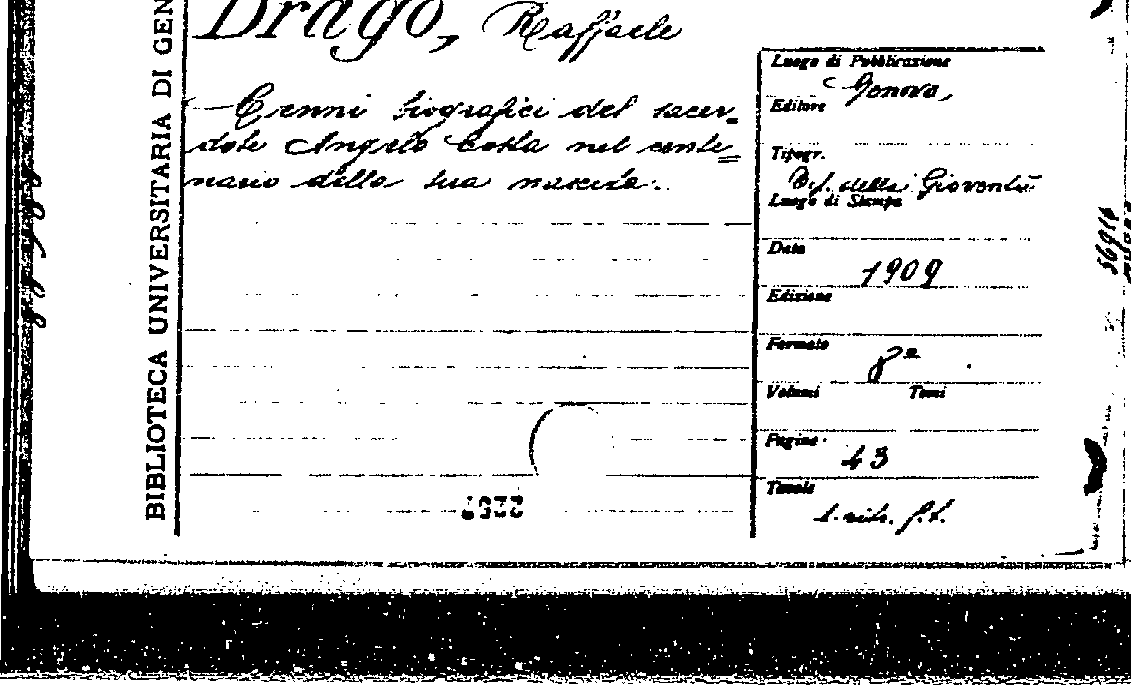 BIBLIOTECA UNIVERSITARIA DI GEN
Drago, Raffaele
Cenni biografici del sacer-
dote Angelo Costa nel cente=
nario della sua nascita.
Luogo di Pubblicazione
Genova,
Editore
Tipogr.
Tip. della Gioventù
Luogo di Stampa
Data
1909
Edizione
Formato
8°
Volumi Tomi
Pagine
43
Tavole
1. ritr. f.t.